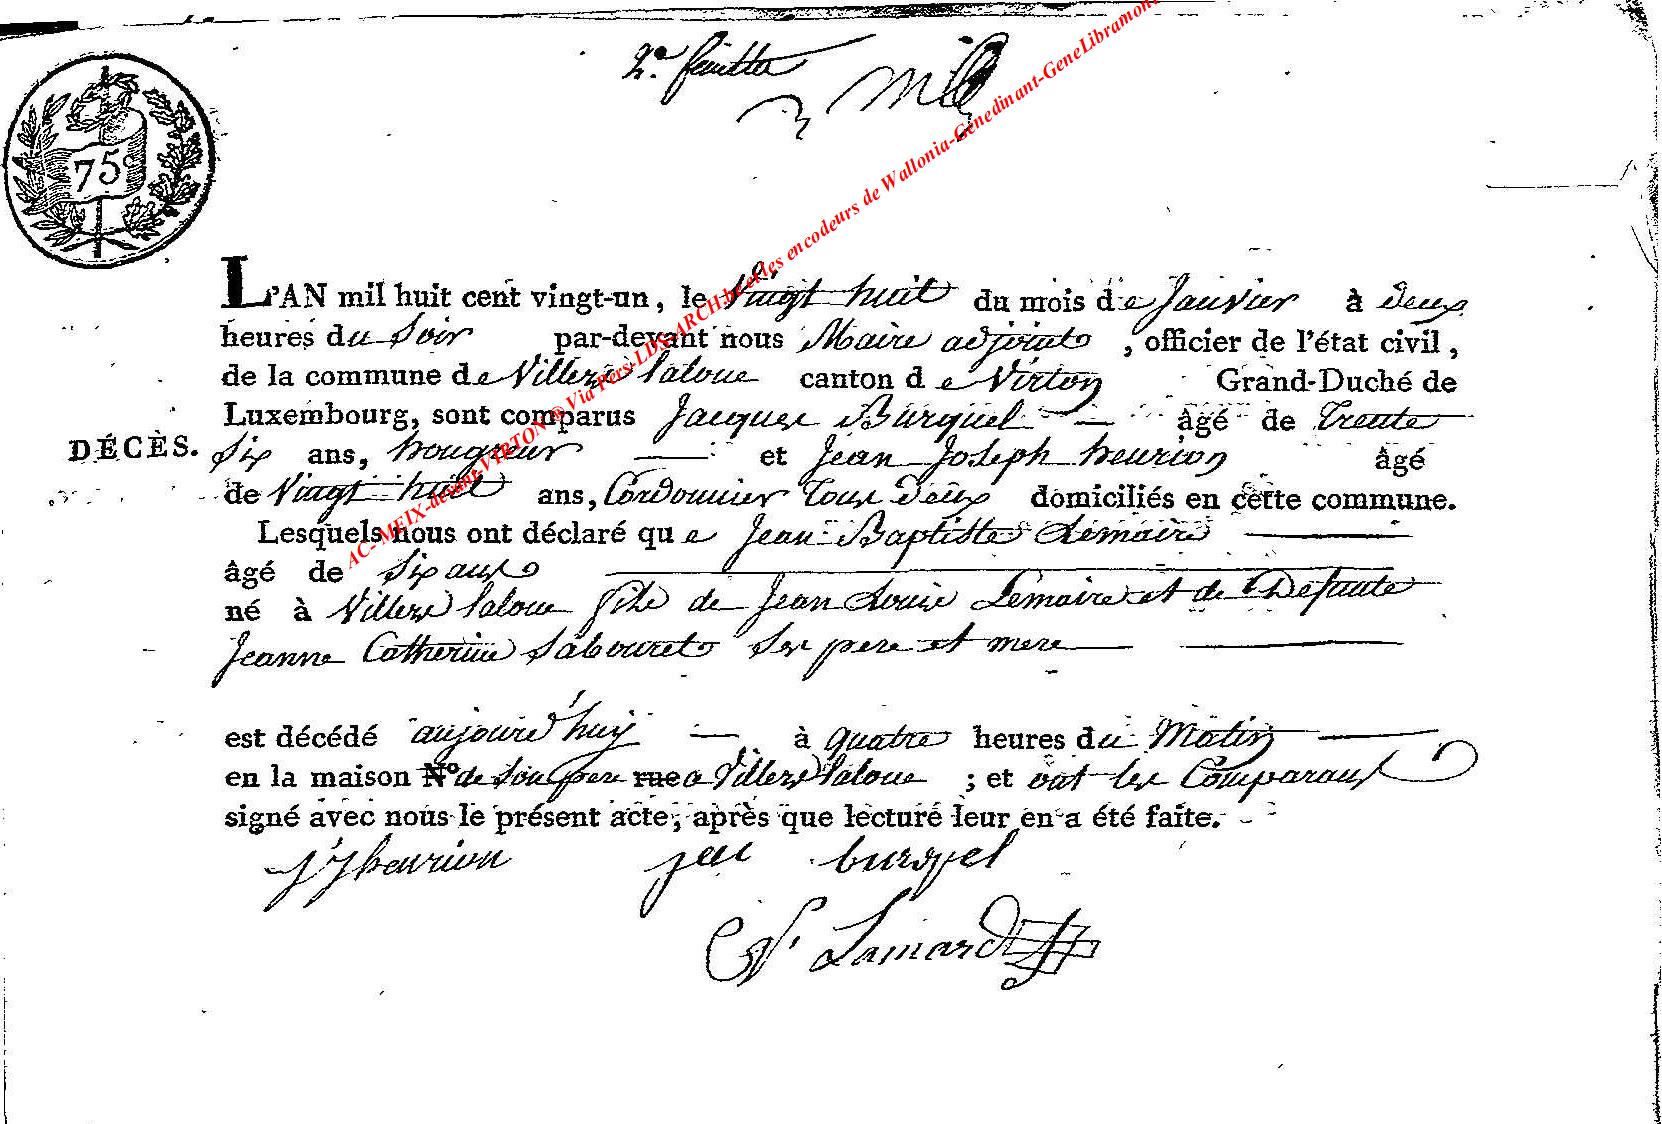 2.e feuillet
75c
L'AN mil huit cent vingt-un, le Vingt huit du mois de Janvier à deux
heures du Soir par-devant nous Maire adjoint, officier de l'état civil,
de la commune de Villers laloue canton de Virton Grand-Duché de
Luxembourg, sont comparus Jacques Burquel âgé de Trente
DÉCÈS.
Six ans, hougneur et Jean Joseph henrion âgé
de Vingt huit ans, Cordonnier Tous deux domiciliés en cette commune.
Lesquels nous ont déclaré que Jean Baptiste Lemaire
âgé de Six ans
né à Villers laloue fils de Jean Louis Lemaire et de Défunte
Jeanne Catherine Sabouret Ses pere et mere
est décédé aujourd'huy à quatre heures du Matin
en la maison N.o de Son pere rue a Villers laloue ; et ont les Comparans
signé avec nous le présent acte, après que lecture leur en a été faite.
JJ henrion jac burquel
Lainard
AC- MEIX-devant-VIRTON @ Via Pers-LDS-ARCH-be et les encodeurs de Wallonia-Genedinant-GeneLibramont